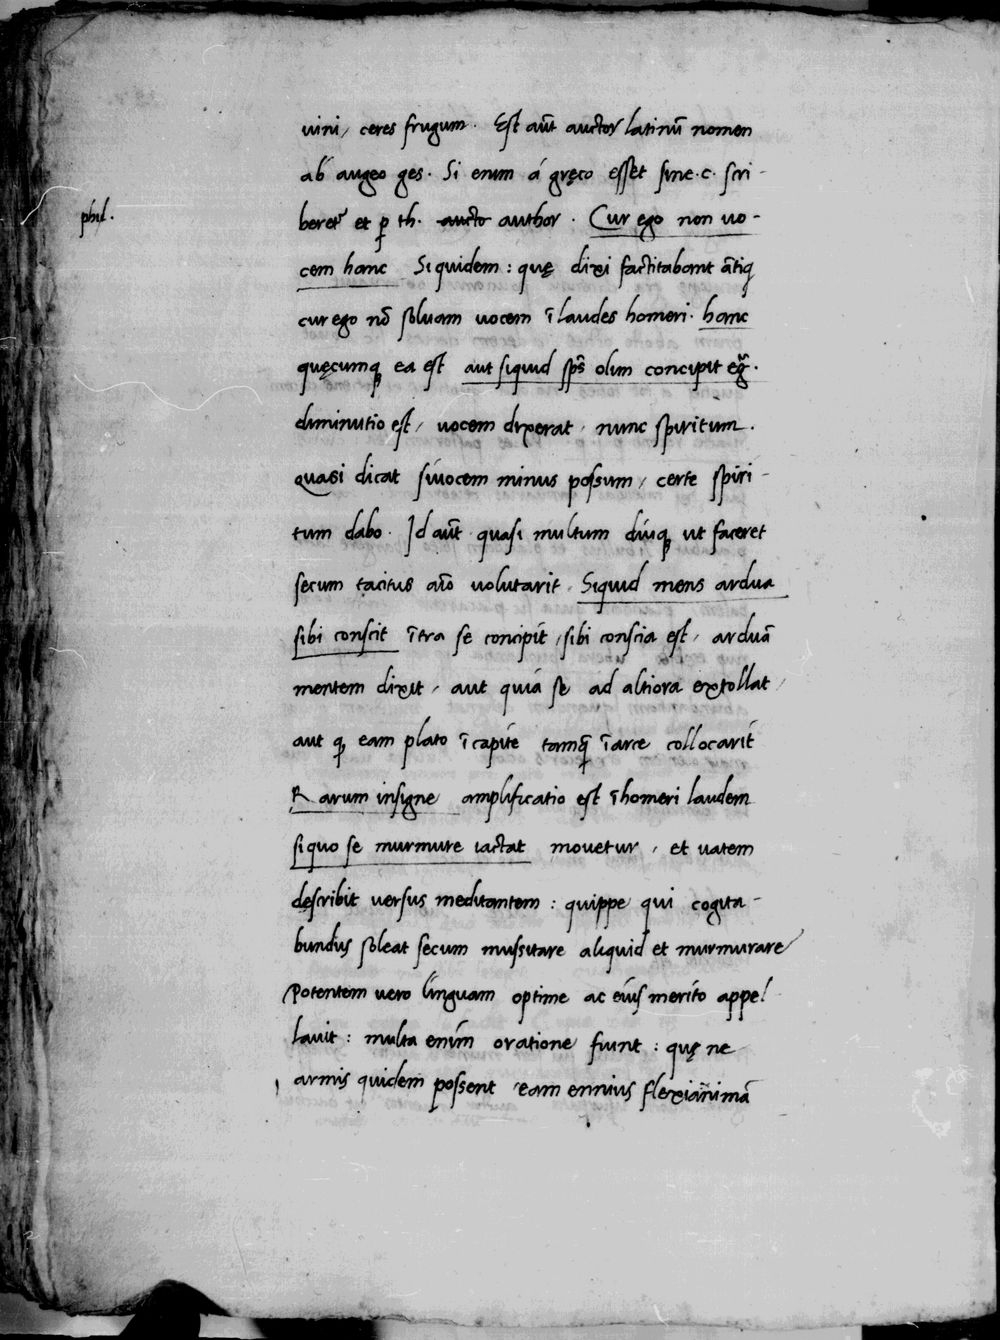 uini, ceres frugum. Est aūt auctor latinū nomen
ab augeo ges. Si enim á gręco esset sine .c. scri-
phil.
beret᷑ et ꝑ th. aucto author. Cur ego non uo-
cem hanc Siquidem: quę dixi factitabant ātiq
cur ego nō soluam uocem ī laudes homeri. hanc
quęcumq ea est aut siquid sp̄s olim concipit
diminutio est, uocem dixerat, nunc spiritum.
quasi dicat siuocem minus possum, certe spiri-
tum dabo. Id aūt quasi multum diuq ut faceret
secum tacitus aīo uolutarit. Siquid mens ardua
sibi conscit ītra se concipit, sibi conscia est, arduā
mentem dixit, aut quia se ad altiora extollat,
aut q eam plato ī capite tamq̄ ī arce collocarit
Rarum insigne amplificatio est ī homeri laudem
siquo se murmure iactat mouetur, et uatem
describit uersus meditantem: quippe qui cogita-
bundus soleat secum mussitare aliquid et murmurare
Potentem uero linguam optime ac eius merito appel
lauit: multa enim oratione fiunt: quę ne
armis quidem possent, eam ennius flexianimā